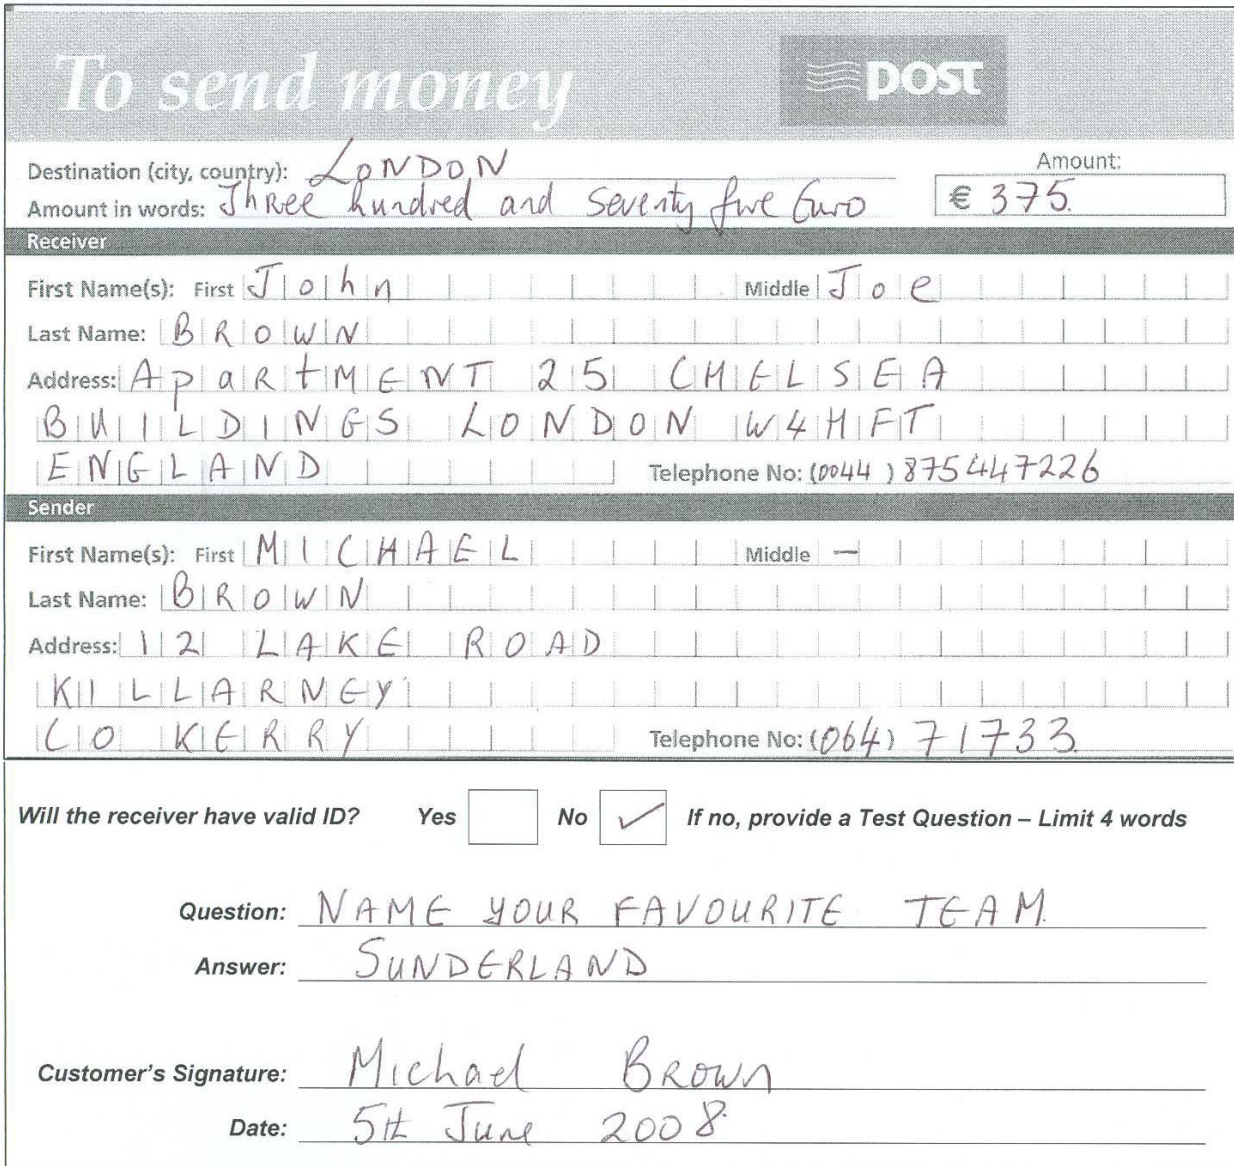 To send money post
Destination (city, country): LONDON Amount:
Amount in words: Three hundred and Seventy five Euro € 375.
Receiver
First Name(s): First John Middle Joe
Last Name: BROWN
Address: ApaRtMENT 25 CHELSEA
BUILDINGS LONDON W4HFT
ENGLAND Telephone No: (0044) 875447226
Sender
First Name(s): First MICHAEL Middle —
Last Name: BROWN
Address: 12 LAKE ROAD
KILLARNEY
CO KERRY Telephone No: (064) 71733.
Will the receiver have valid ID? Yes No ✓ If no, provide a Test Question – Limit 4 words
Question: NAME YOUR FAVOURITE TEAM.
Answer: SUNDERLAND
Customer's Signature: Michael Brown
Date: 5th June 2008.